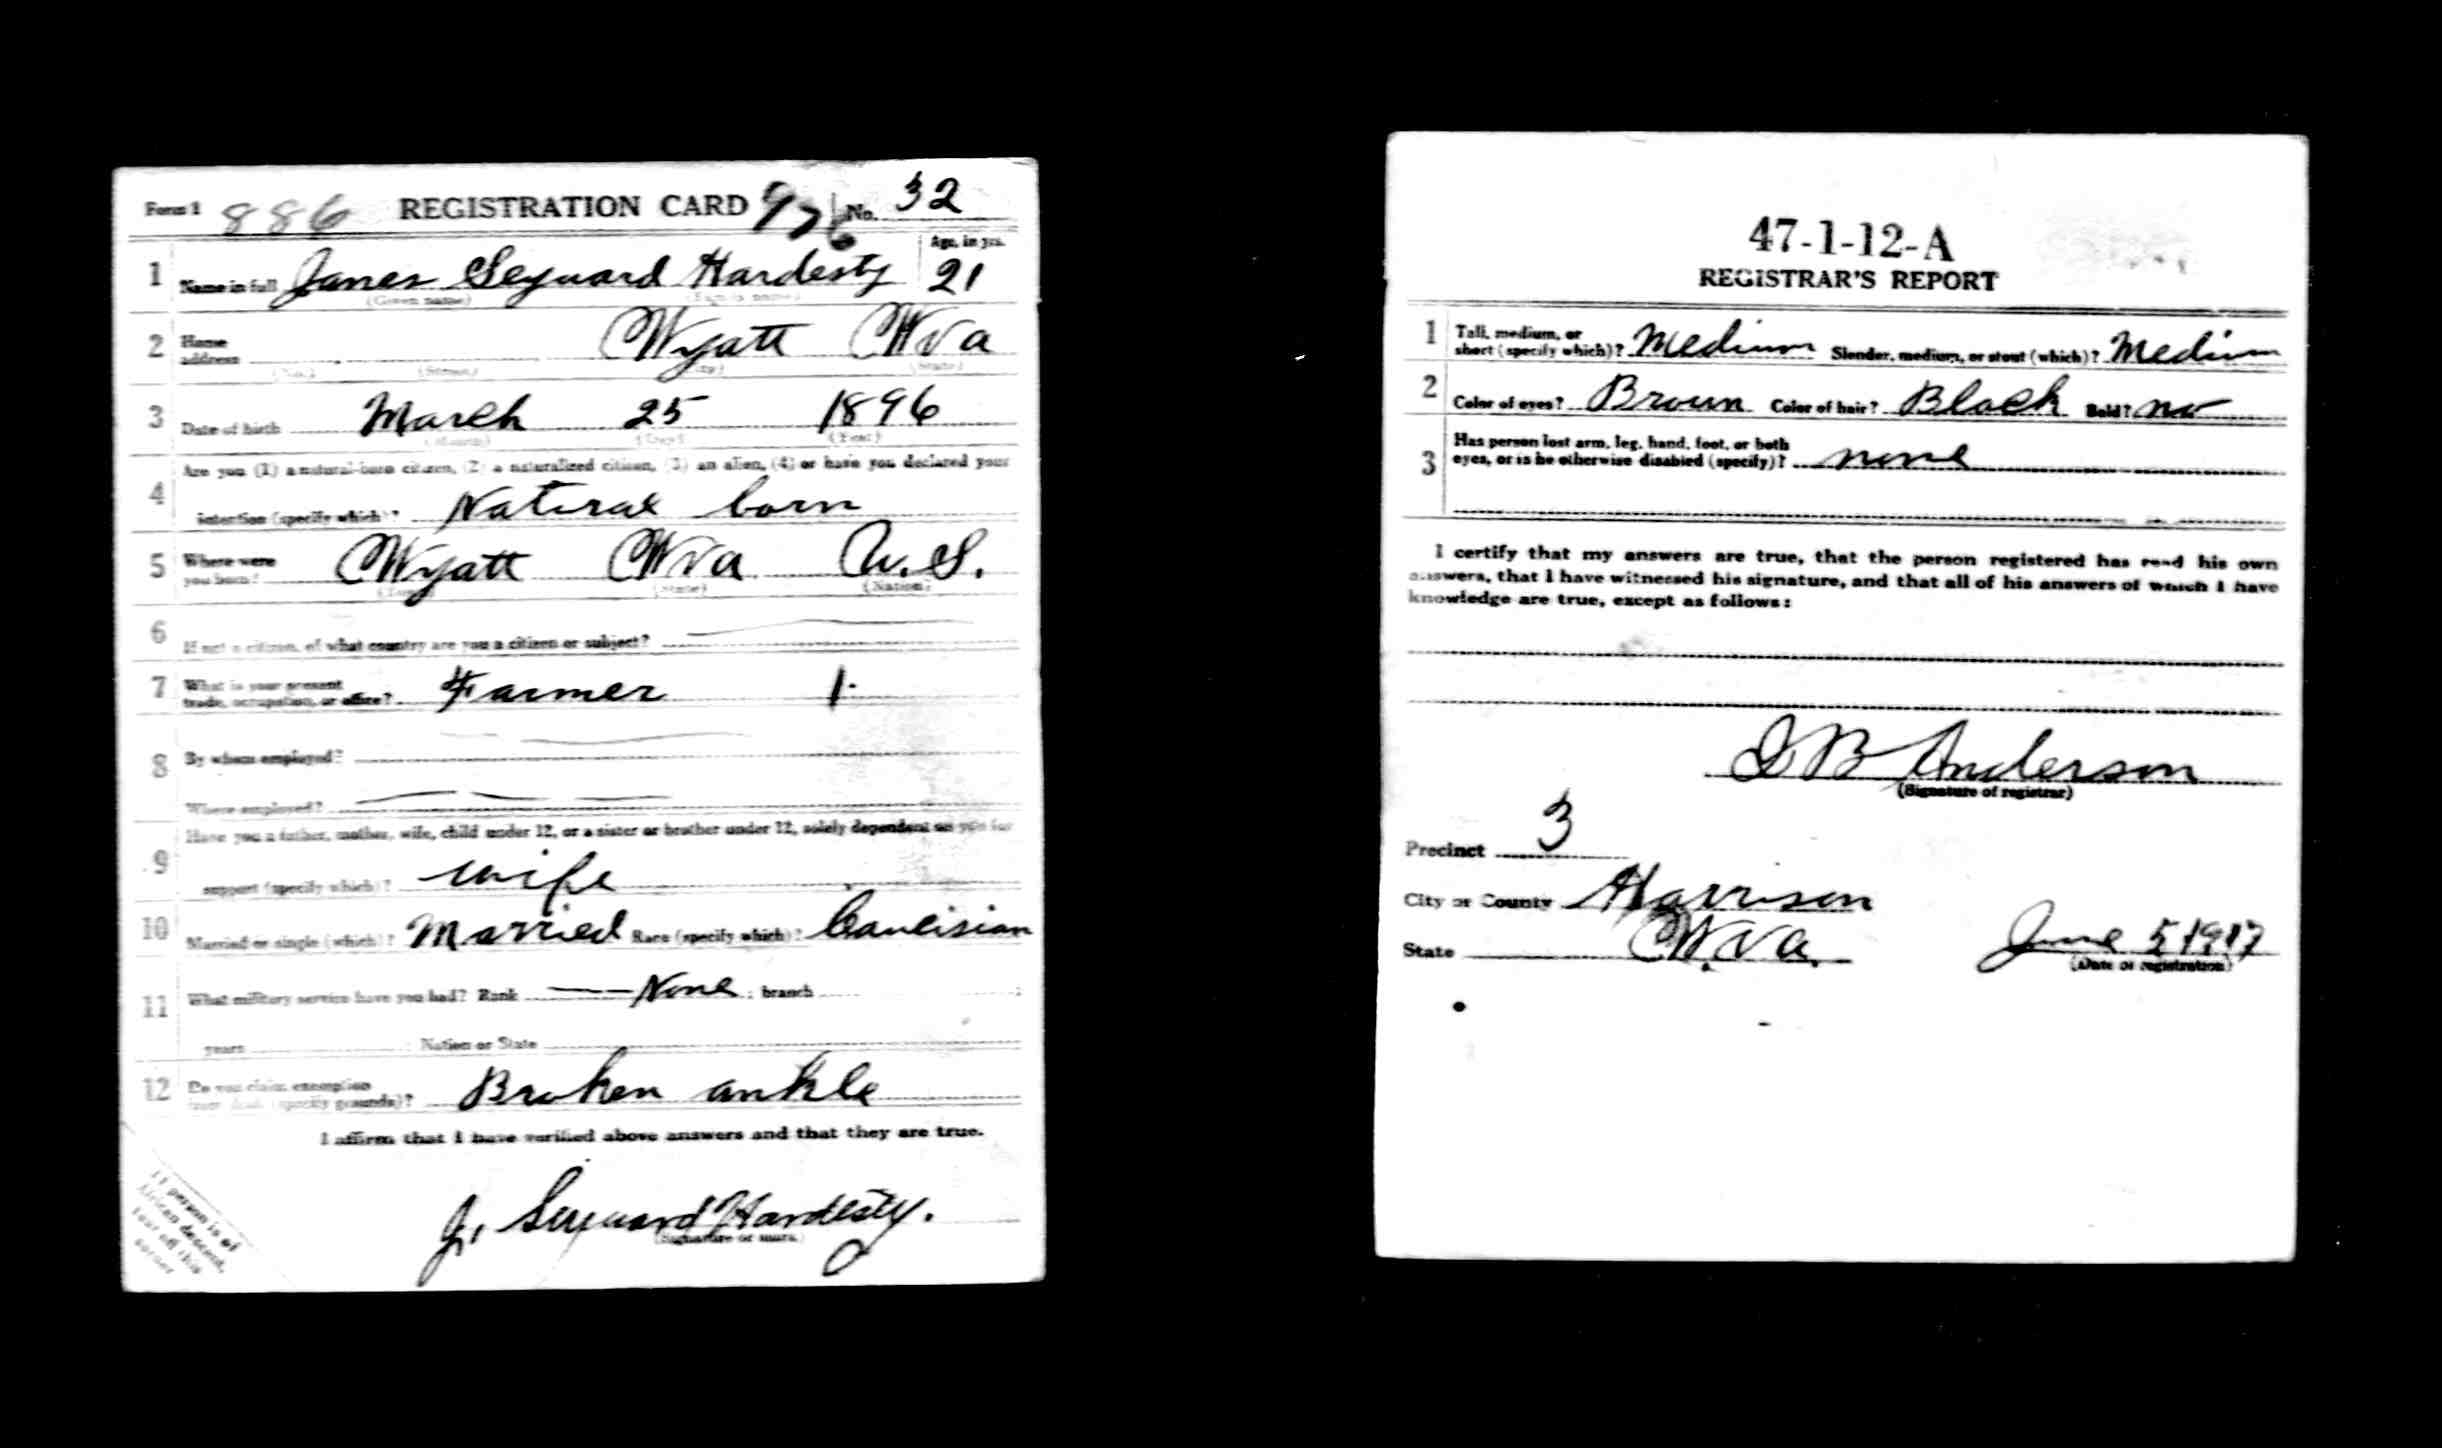 Form 1 886 REGISTRATION CARD 976 No. 32
1 Name in full James Seyward Hardesty Age, in yrs. 21
(Given name) (Family name)
2 Home address Wyatt W Va
(No.) (Street) (City) (State)
3 Date of birth March 25 1896
(Month) (Day) (Year)
4 Are you (1) a natural-born citizen, (2) a naturalized citizen, (3) an alien, (4) or have you declared your
intention (specify which)? Natural born
5 Where were you born? Wyatt W Va U.S.
(Town) (State) (Nation)
6 If not a citizen, of what country are you a citizen or subject?
7 What is your present trade, occupation, or office? Farmer 1.
8 By whom employed?
Where employed?
9 Have you a father, mother, wife, child under 12, or a sister or brother under 12, solely dependent on you for
support (specify which)? wife
10 Married or single (which)? Married Race (specify which)? Caucisian
11 What military service have you had? Rank None ; branch ;
years ; Nation or State
12 Do you claim exemption from draft (specify grounds)? Broken ankle
I affirm that I have verified above answers and that they are true.
J. Seyward Hardesty.
(Signature or mark)
If person is of
African descent,
tear off this
corner
47-1-12-A
REGISTRAR'S REPORT
1 Tall, medium, or short (specify which)? Medium Slender, medium, or stout (which)? Medium
2 Color of eyes? Brown Color of hair? Black Bald? no
3 Has person lost arm, leg, hand, foot, or both
eyes, or is he otherwise disabled (specify)? none
I certify that my answers are true, that the person registered has read his own
answers, that I have witnessed his signature, and that all of his answers of which I have
knowledge are true, except as follows:
Anderson
(Signature of registrar)
Precinct 3
City or County Harrison
State W. Va. June 5 1917
(Date of registration)